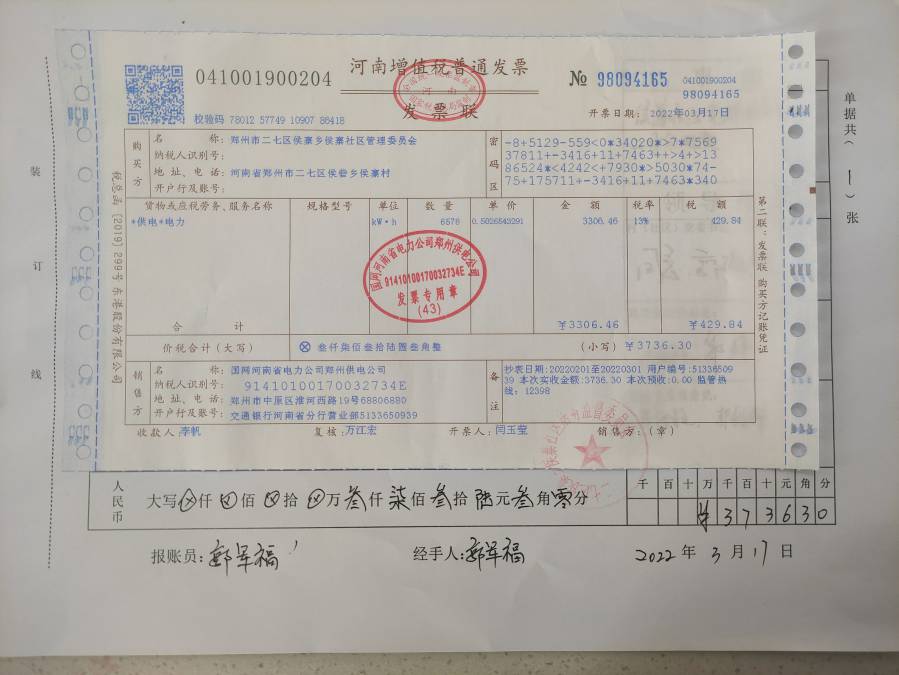 河南增值税普通发票
发票联
041001900204
№ 98094165
041001900204
98094165
校验码 78012 57749 10907 86418
开票日期: 2022年03月17日
购买方
名称: 郑州市二七区侯寨乡侯寨社区管理委员会
纳税人识别号:
地址、电话: 河南省郑州市二七区侯寨乡侯寨村
开户行及账号:
密码区
-8+5129-559<0*34020*>7*7569
37811+-3416+11+7463++>4+>13
86524*<4242<+7930*>5030*74-
75+175711+-3416+11+7463*340
货物或应税劳务、服务名称 规格型号 单位 数量 单价 金额 税率 税额
*供电*电力 kW·h 6578 0.5026543291 3306.46 13% 429.84
合计 ¥3306.46 ¥429.84
价税合计(大写) ⊗ 叁仟柒佰叁拾陆圆叁角整 (小写) ¥3736.30
销售方
名称: 国网河南省电力公司郑州供电公司
纳税人识别号: 91410100170032734E
地址、电话: 郑州市中原区淮河西路19号68806880
开户行及账号: 交通银行河南省分行营业部5133650939
备注
抄表日期:20220201至20220301 用户编号:51336509
39 本次实收金额:3736.30 本次预收:0.00 监管热
线: 12398
收款人 李帆 复核: 万江宏 开票人: 闫玉莹 销售方: (章)
国网河南省电力公司郑州供电公司
91410100170032734E
发票专用章
(43)
税总函〔2019〕299号 东港股份有限公司
第二联: 发票联 购买方记账凭证
单据共(一)张
装订线
人民币
大写⊗仟⊗佰⊗拾⊗万叁仟柒佰叁拾陆元叁角零分
千百十万千百十元角分
¥373630
报账员: 郭军福
经手人: 郭军福
2022年3月17日